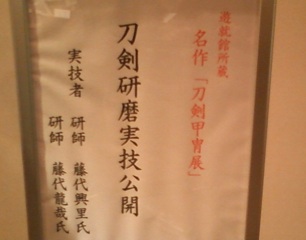 遊就館所蔵
名作「刀剣甲冑展」
刀剣研磨実技公開
実技者　研師　藤代興里氏
研師　藤代龍哉氏